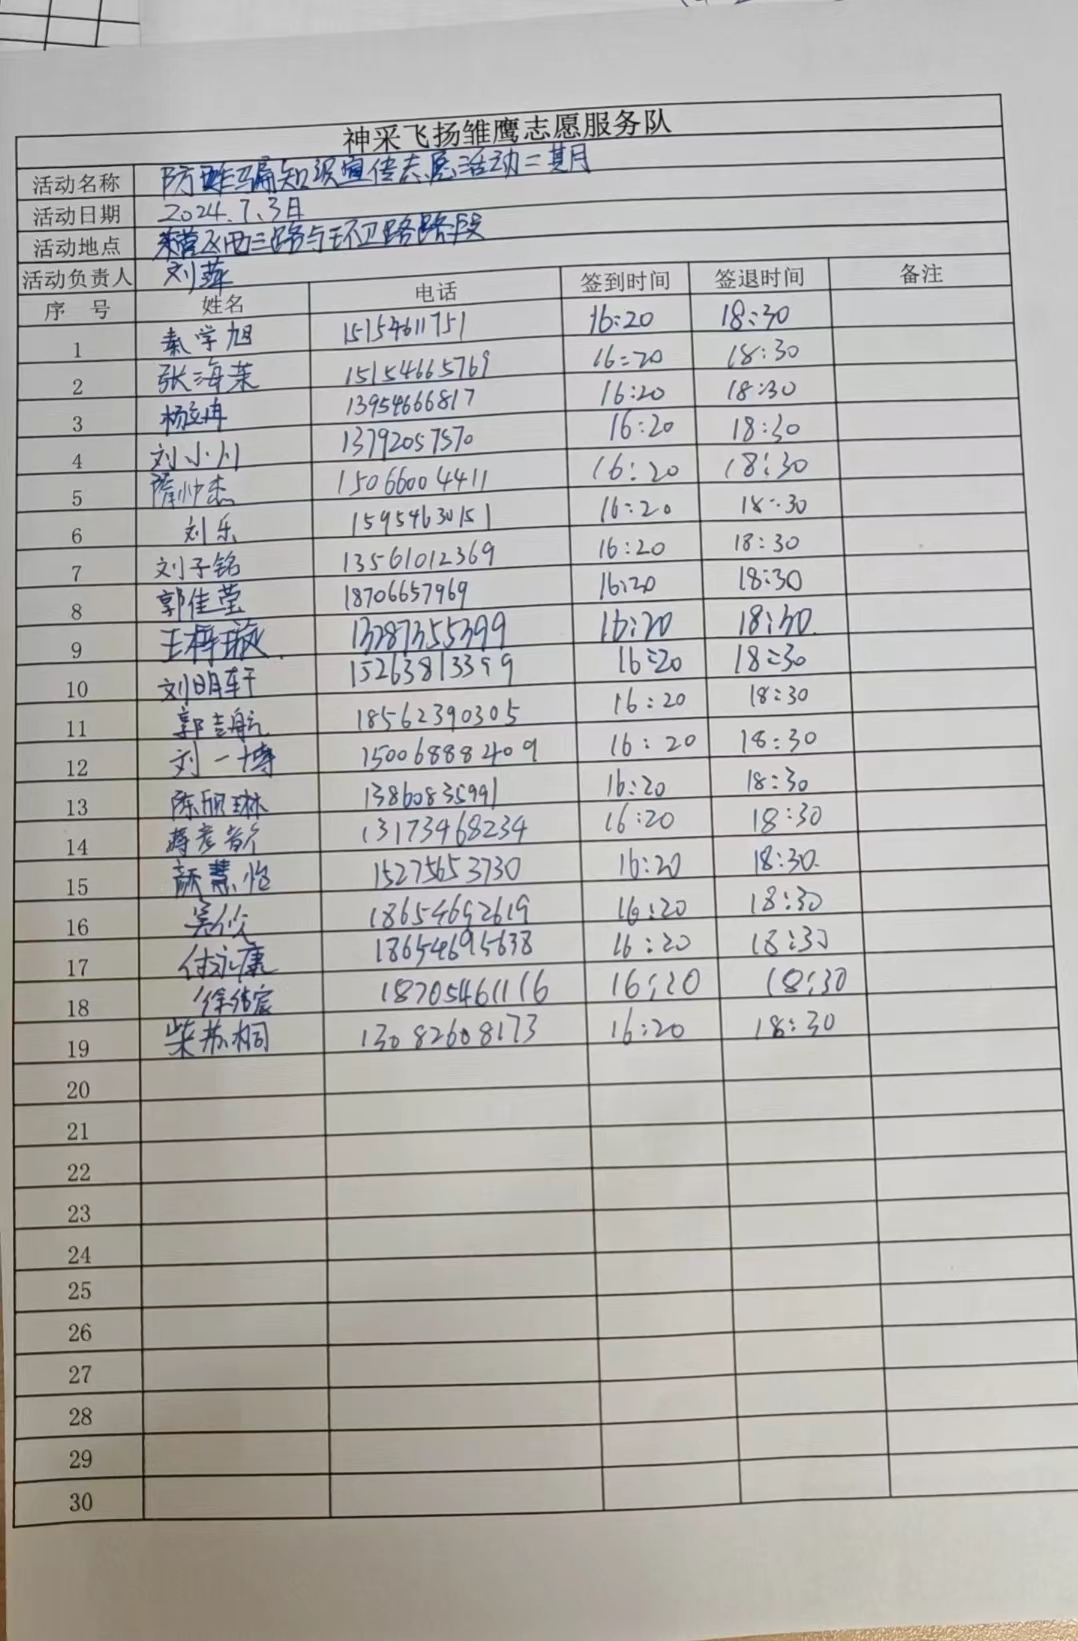 神采飞扬雏鹰志愿服务队
活动名称 防诈骗知识宣传志愿活动二期
活动日期 2024.7.3日
活动地点 东营区西三路与环卫路路段
活动负责人 刘萍
序 号 姓名 电话 签到时间 签退时间 备注
1 秦学旭 15154611751 16:20 18:30
2 张海荣 15154665769 16:20 18:30
3 杨立冉 13954666817 16:20 18:30
4 刘小川 13792057570 16:20 18:30
5 隋帅杰 15066004411 16:20 18:30
6 刘乐 15954630151 16:20 18:30
7 刘子铭 13561012369 16:20 18:30
8 郭佳莹 18706657969 16:20 18:30
9 王梓璇 13287355399 16:20 18:30
10 刘明轩 15263813399 16:20 18:30
11 郭吉航 18562390305 16:20 18:30
12 刘一博 15006888409 16:20 18:30
13 陈欣琳 13860835991 16:20 18:30
14 13173468234 16:20 18:30
15 颜慧怡 15275653730 16:20 18:30
16 18654692619 16:20 18:30
17 付永康 18654695638 16:20 18:30
18 徐结宸 18705461116 16:20 18:30
19 柴苏桐 13082608173 16:20 18:30
20
21
22
23
24
25
26
27
28
29
30